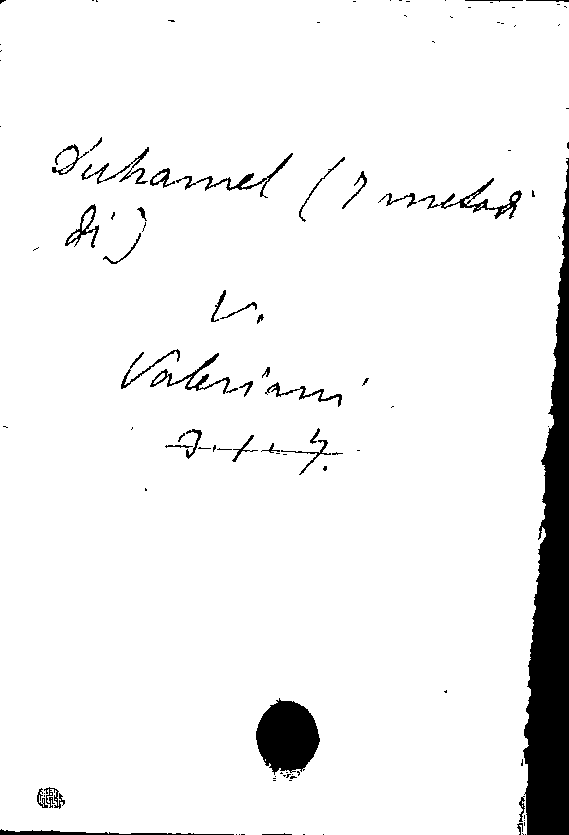 Duhamel (I metodi
di)
V.
Valeriani